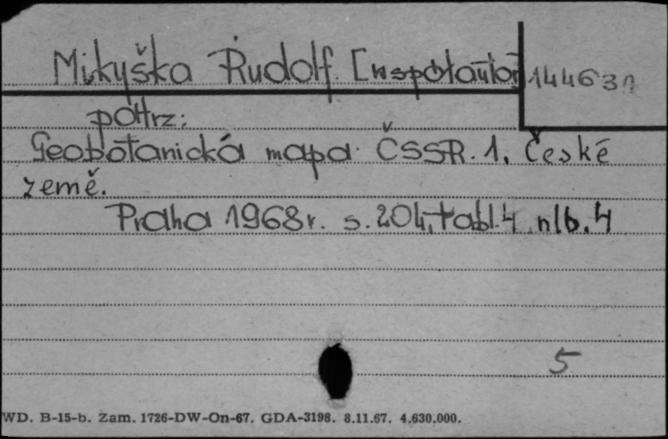 Mikyška Rudolf. [współautor]
144631
patrz:
Geobotanická mapa ČSSR. 1. České
země.
Praha 1968r. s. 204, tabl. 4 nlb. 4
5
WD. B-15-b. Zam. 1726-DW-On-67. GDA-3198. 8.11.67. 4.630.000.